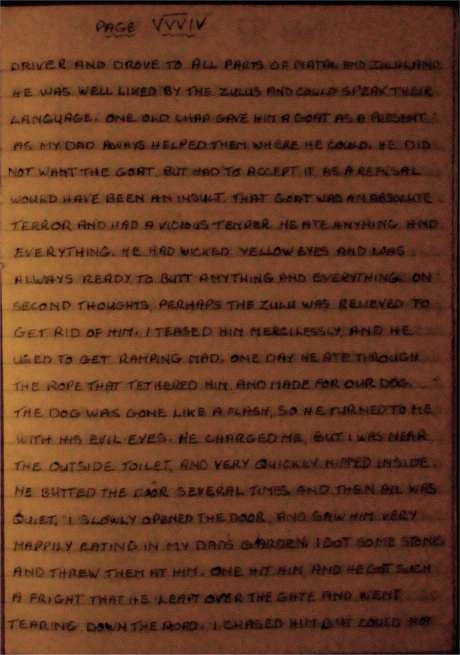 PAGE VVVIV
DRIVER AND DROVE TO ALL PARTS OF NATAL AND ZULULAND
HE WAS WELL LIKED BY THE ZULUS AND COULD SPEAK THEIR
LANGUAGE. ONE OLD CHAP GAVE HIM A GOAT AS A PRESENT
AS MY DAD ALWAYS HELPED THEM WHERE HE COULD. HE DID
NOT WANT THE GOAT, BUT HAD TO ACCEPT IT AS A REFUSAL
WOULD HAVE BEEN AN INSULT. THAT GOAT WAS AN ABSOLUTE
TERROR AND HAD A VICIOUS TEMPER HE ATE ANYHING AND
EVERYTHING. HE HAD WICKED YELLOW EYES AND WAS
ALWAYS READY TO BUTT ANYTHING AND EVERYTHING. ON
SECOND THOUGHTS PERHAPS THE ZULU WAS RELIEVED TO
GET RID OF HIM. I TEASED HIM MERCILESSLY, AND HE
USED TO GET RAMPING MAD. ONE DAY HE ATE THROUGH
THE ROPE THAT TETHERED HIM AND MADE FOR OUR DOG.
THE DOG WAS GONE LIKE A FLASH, SO HE TURNED TO ME
WITH HIS EVIL EYES. HE CHARGED ME, BUT I WAS NEAR
THE OUTSIDE TOILET, AND VERY QUICKLY NIPPED INSIDE.
HE BUTTED THE DOOR SEVERAL TIMES AND THEN ALL WAS
QUIET. I SLOWLY OPENED THE DOOR AND SAW HIM VERY
HAPPILY EATING IN MY DADS GARDEN. I GOT SOME STONES
AND THREW THEM AT HIM. ONE HIT HIM AND HE GOT SUCH
A FRIGHT THAT HE LEAPT OVER THE GATE AND WENT
TEARING DOWN THE ROAD. I CHASED HIM BUT COULD NOT